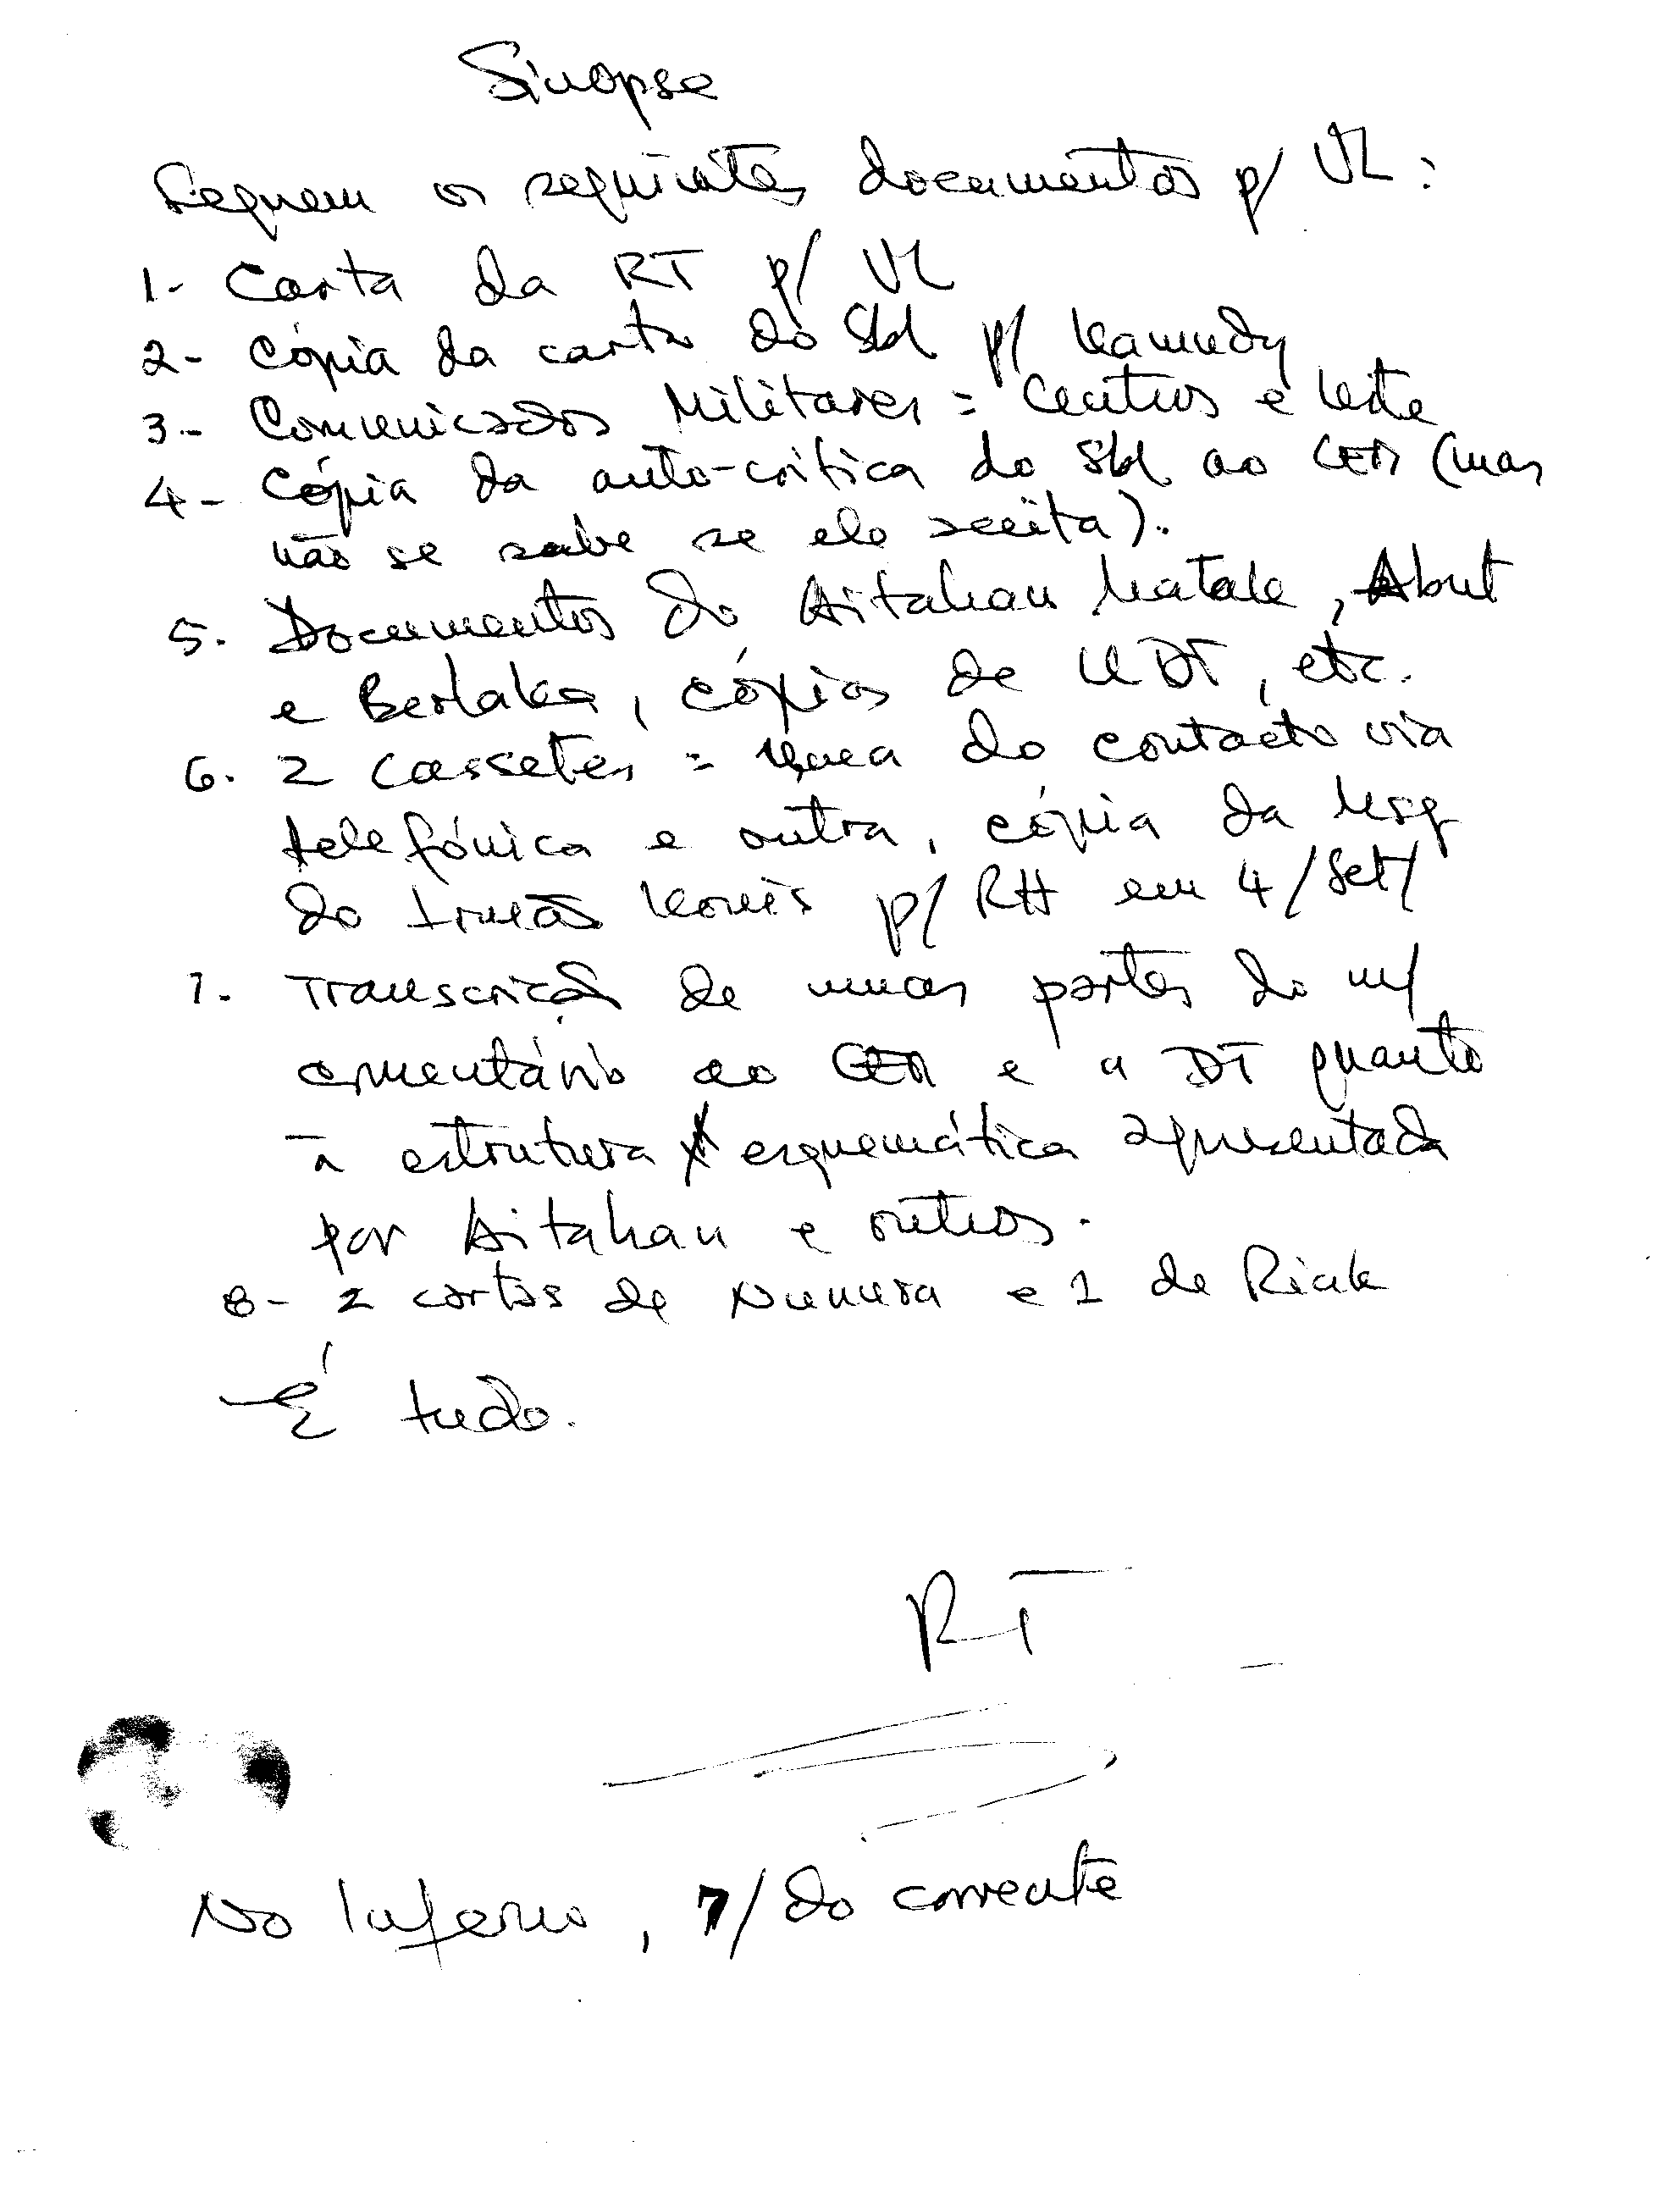 Sinopse
Seguem os seguintes documentos p/ VL:
1- Carta da RT p/ VL
2- Cópia da carta do Sbl p/
3- Comunicados Militares = Centros e Leste
4- Cópia da auto-crítica do Sbl ao CEM (mas
não se sabe se ele aceita).
5. Documentos do Aitahan Matak, About
e Berlaka, cópias de UDT, etc.
6. 2 Cassetes = uma do contacto via
telefónica e outra, cópia da Msg
do Irmão Konis p/ RH em 4/Set/
7. Transcrição de umas partes do m/
comentário ao CEM e a DT quanto
à estrutura esquemática apresentada
por Aitahan e outros.
8- 2 cartas de Numura e 1 de Riak
É tudo.
RT
No Inferno, 7/do corrente